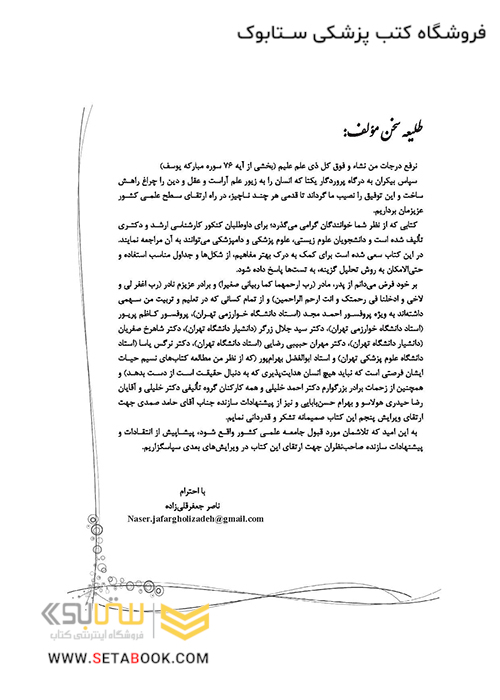 فروشگاه کتب پزشکی ستابوک
طلیعه سخن مؤلف:
نرفع درجات من نشاء و فوق کل ذی علم علیم (بخشی از آیه ۷۶ سوره مبارکه یوسف)
سپاس بیکران به درگاه پروردگار یکتا که انسان را به زیور علم آراست و عقل و دین را چراغ راهش
ساخت و این توفیق را نصیب ما گرداند تا قدمی هر چند ناچیز، در راه ارتقای سطح علمی کشور
عزیزمان برداریم.
کتابی که از نظر شما خوانندگان گرامی می‌گذرد؛ برای داوطلبان کنکور کارشناسی ارشد و دکتری
تألیف شده است و دانشجویان علوم زیستی، علوم پزشکی و دامپزشکی می‌توانند به آن مراجعه نمایند.
در این کتاب سعی شده است برای کمک به درک بهتر مفاهیم، از شکل‌ها و جداول مناسب استفاده و
حتی‌الامکان به روش تحلیل گزینه، به تست‌ها پاسخ داده شود.
بر خود فرض می‌دانم از پدر، مادر (رب ارحمهما کما ربیانی صغیرا) و برادر عزیزم نادر (رب اغفر لی و
لاخی و ادخلنا فی رحمتک و انت ارحم الراحمین) و از تمام کسانی که در تعلیم و تربیت من سهمی
داشته‌اند به ویژه پروفسور احمد مجد (استاد دانشگاه خوارزمی تهران)، پروفسور کاظم پریور
(استاد دانشگاه خوارزمی تهران)، دکتر سید جلال زرگر (دانشیار دانشگاه تهران)، دکتر شاهرخ صفریان
(دانشیار دانشگاه تهران)، دکتر مهران حبیبی رضایی (استاد دانشگاه تهران)، دکتر نرگس یاسا (استاد
دانشگاه علوم پزشکی تهران) و استاد ابوالفضل بهرام‌پور (که از نظر من مطالعه کتاب‌های نسیم حیات
ایشان فرصتی است که نباید هیچ انسان هدایت‌پذیری که به دنبال حقیقت است از دست بدهد) و
همچنین از زحمات برادر بزرگوارم دکتر احمد خلیلی و همه کارکنان گروه تألیفی دکتر خلیلی و آقایان
رضا حیدری هولاسو و بهرام حسن‌بابایی و نیز از پیشنهادات سازنده جناب آقای حامد صمدی جهت
ارتقای ویرایش پنجم این کتاب صمیمانه تشکر و قدردانی نمایم.
به این امید که تلاشمان مورد قبول جامعه علمی کشور واقع شود، پیشاپیش از انتقادات و
پیشنهادات سازنده صاحب‌نظران جهت ارتقای این کتاب در ویرایش‌های بعدی سپاسگزاریم.
با احترام
ناصر جعفرقلی‌زاده
Naser.jafargholizadeh@gmail.com
ستابوک
فروشگاه اینترنتی کتاب
WWW.SETABOOK.COM